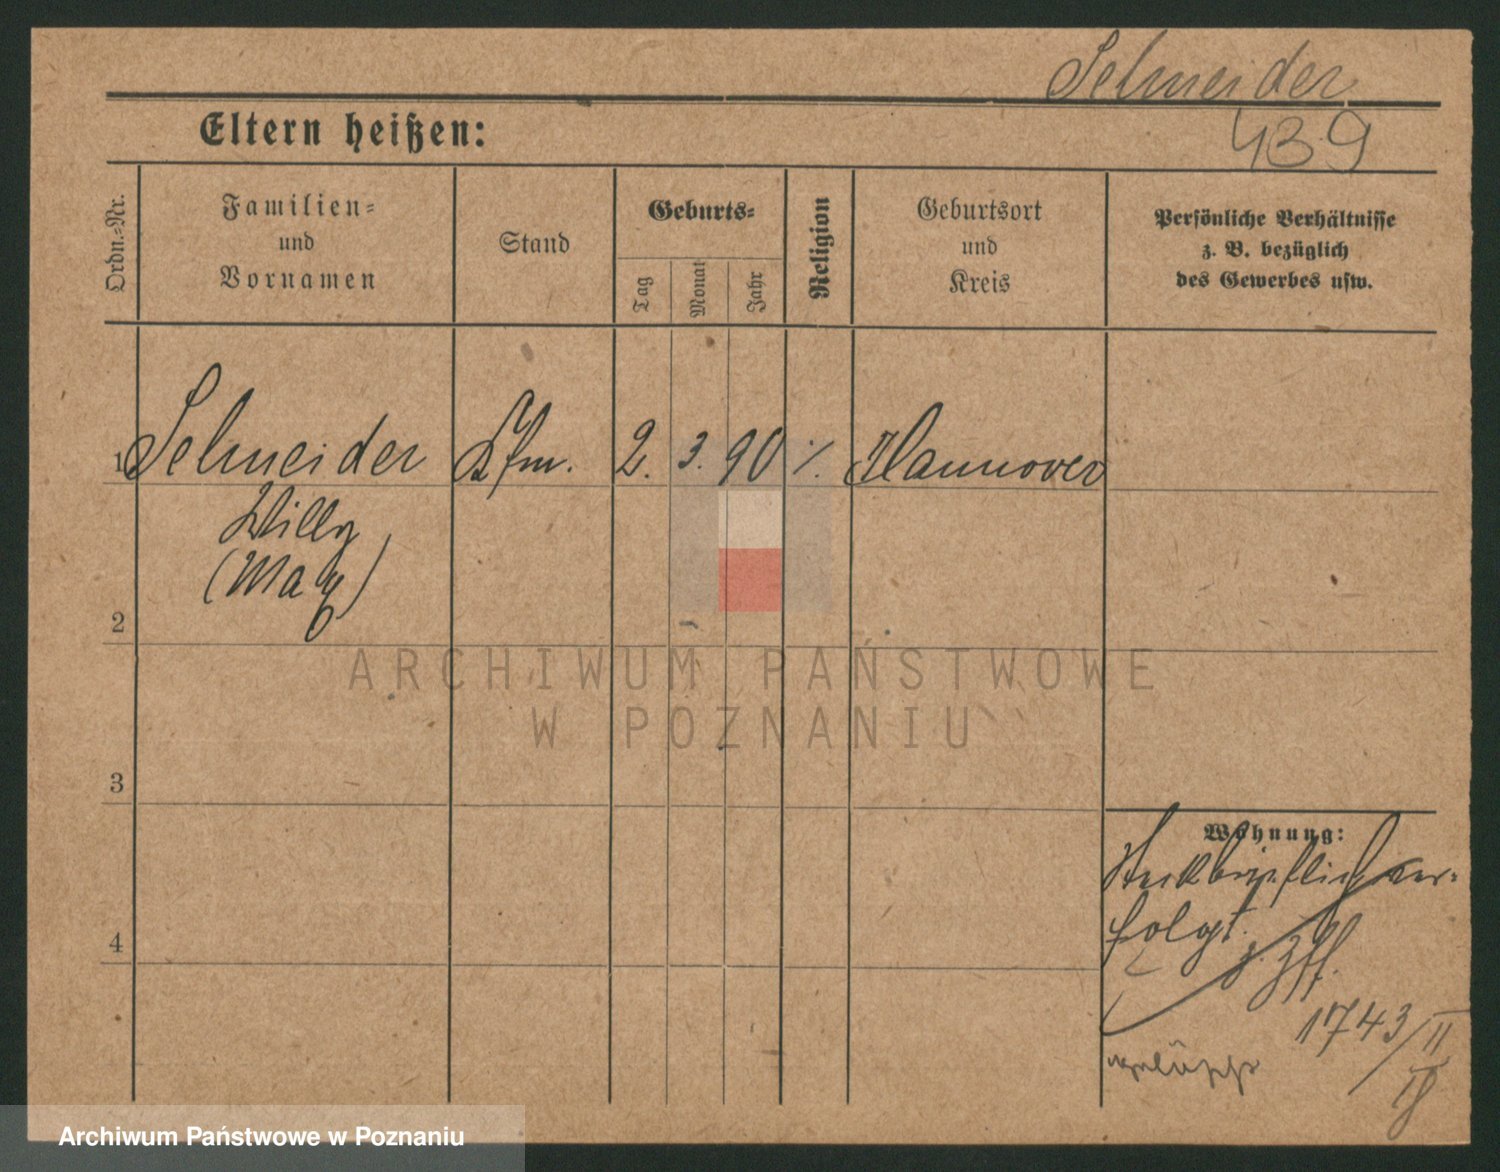 Schneider
439
Eltern heißen:
Ordn.-Nr.
Familien-
und
Vornamen
Stand
Geburts-
Tag
Monat
Jahr
Religion
Geburtsort
und
Kreis
Persönliche Verhältnisse
z. B. bezüglich
des Gewerbes usw.
1 Schneider Kfm. 2. 3. 90 ·/. Hannover
Willy
(Max)
2
ARCHIWUM PAŃSTWOWE
W POZNANIU
3
Wohnung:
Steckbrieflich ver-
folgt.
4
1743/II
19
gelöscht
Archiwum Państwowe w Poznaniu